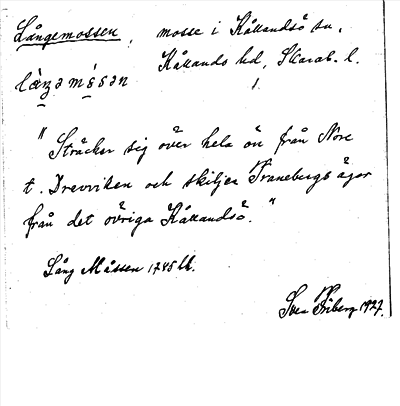 Långemossen, mosse i Kållandsö sn,
Kållands hd, Skarab. l.
làŋamɔ́sən 1.
"Sträcker sig över hela ön från Nore
t. Drevviken och skiljer Tranebergs ägor
från det övriga Kållandsö."
Lång Måssen 1745
Sven Friberg 1927.